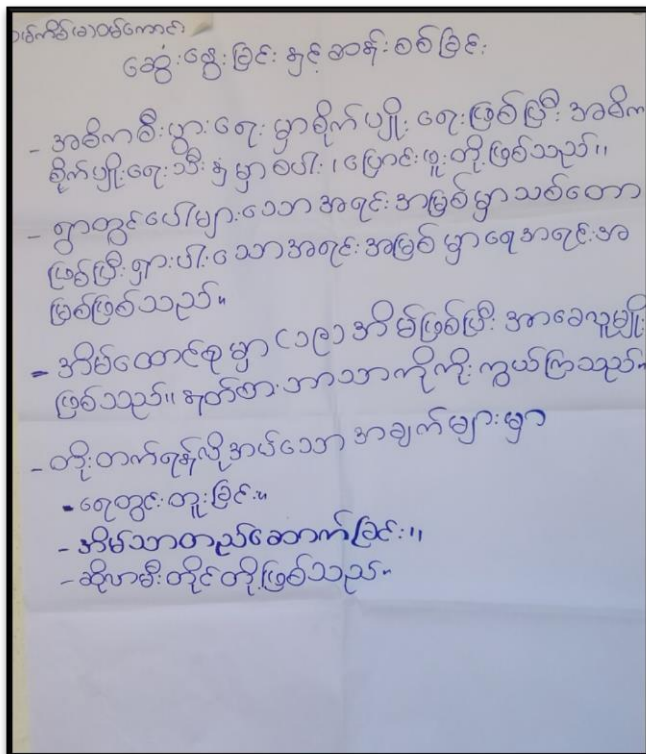 ဆွေးနွေးခြင်းနှင့်ဆန်းစစ်ခြင်း
- အဓိကစီးပွားရေးမှာစိုက်ပျိုးရေးဖြစ်ပြီး အဓိက
စိုက်ပျိုးရေးသီးနှံမှာစပါး၊ ပြောင်းဖူးတို့ဖြစ်သည်။
- ရွာတွင်ပေါများသောအရင်းအမြစ်မှာသစ်တော
ဖြစ်ပြီးရှားပါးသောအရင်းအမြစ်မှာရေအရင်းအ
မြစ်ဖြစ်သည်။
- အိမ်ထောင်စုမှာ (၁၉) အိမ်ဖြစ်ပြီး အာခေလူမျိုး
ဖြစ်သည်။ နတ်စားဘာသာကိုကိုးကွယ်ကြသည်။
- တိုးတက်ရန်လိုအပ်သောအချက်များမှာ
- ရေတွင်းတူးခြင်း။
- အိမ်သာတည်ဆောက်ခြင်း။
- ဆိုလာမီးတိုင်တို့ဖြစ်သည်။